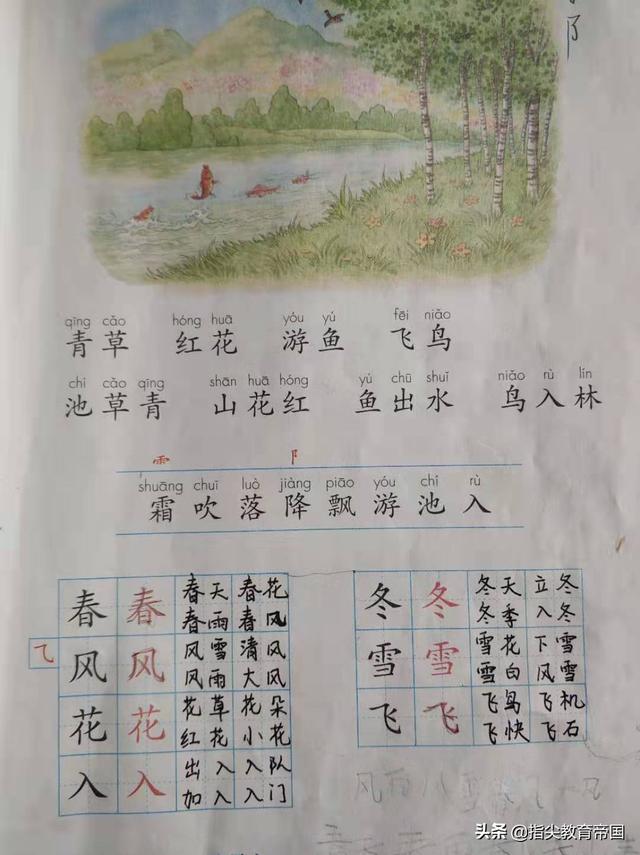 阝
qīng cǎo hóng huā yóu yú fēi niǎo
青草 红花 游鱼 飞鸟
chí cǎo qīng shān huā hóng yú chū shuǐ niǎo rù lín
池草青 山花红 鱼出水 鸟入林
⻗ 阝
shuāng chuī luò jiàng piāo yóu chí rù
霜 吹 落 降 飘 游 池 入
春 春 春天 春花
春雨 春风
⺄ 风 风 风雪 清风
风雨 大风
花 花 花草 花朵
红花 小花
入 入 出入 入队
加入 入门
冬 冬 冬天 立冬
冬季 入冬
雪 雪 雪花 下雪
雪白 风雪
飞 飞 飞鸟 飞机
飞快 飞石
头条 @指尖教育帝国